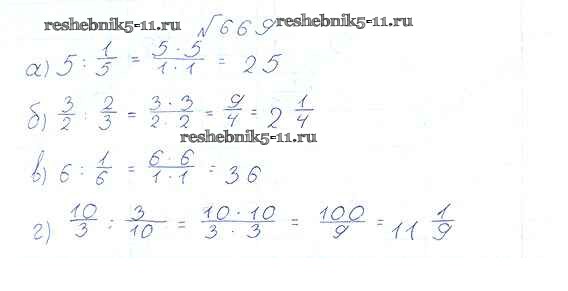 reshebnik5-11.ru √669 reshebnik5-11.ru
а) 5 : 1/5 = 5·5/1·1 = 25
б) 3/2 : 2/3 = 3·3/2·2 = 9/4 = 2 1/4
reshebnik5-11.ru
в) 6 : 1/6 = 6·6/1·1 = 36
г) 10/3 : 3/10 = 10·10/3·3 = 100/9 = 11 1/9